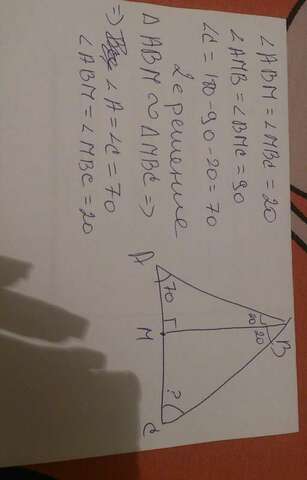 ∠ABM = ∠MBC = 20
∠AMB = ∠BMC = 90
∠C = 180 - 90 - 20 = 70
2 решение
△ABM ∾ △MBC =>
=> ∠A = ∠C = 70
∠ABM = ∠MBC = 20
A
70
M
?
C
20
20
B